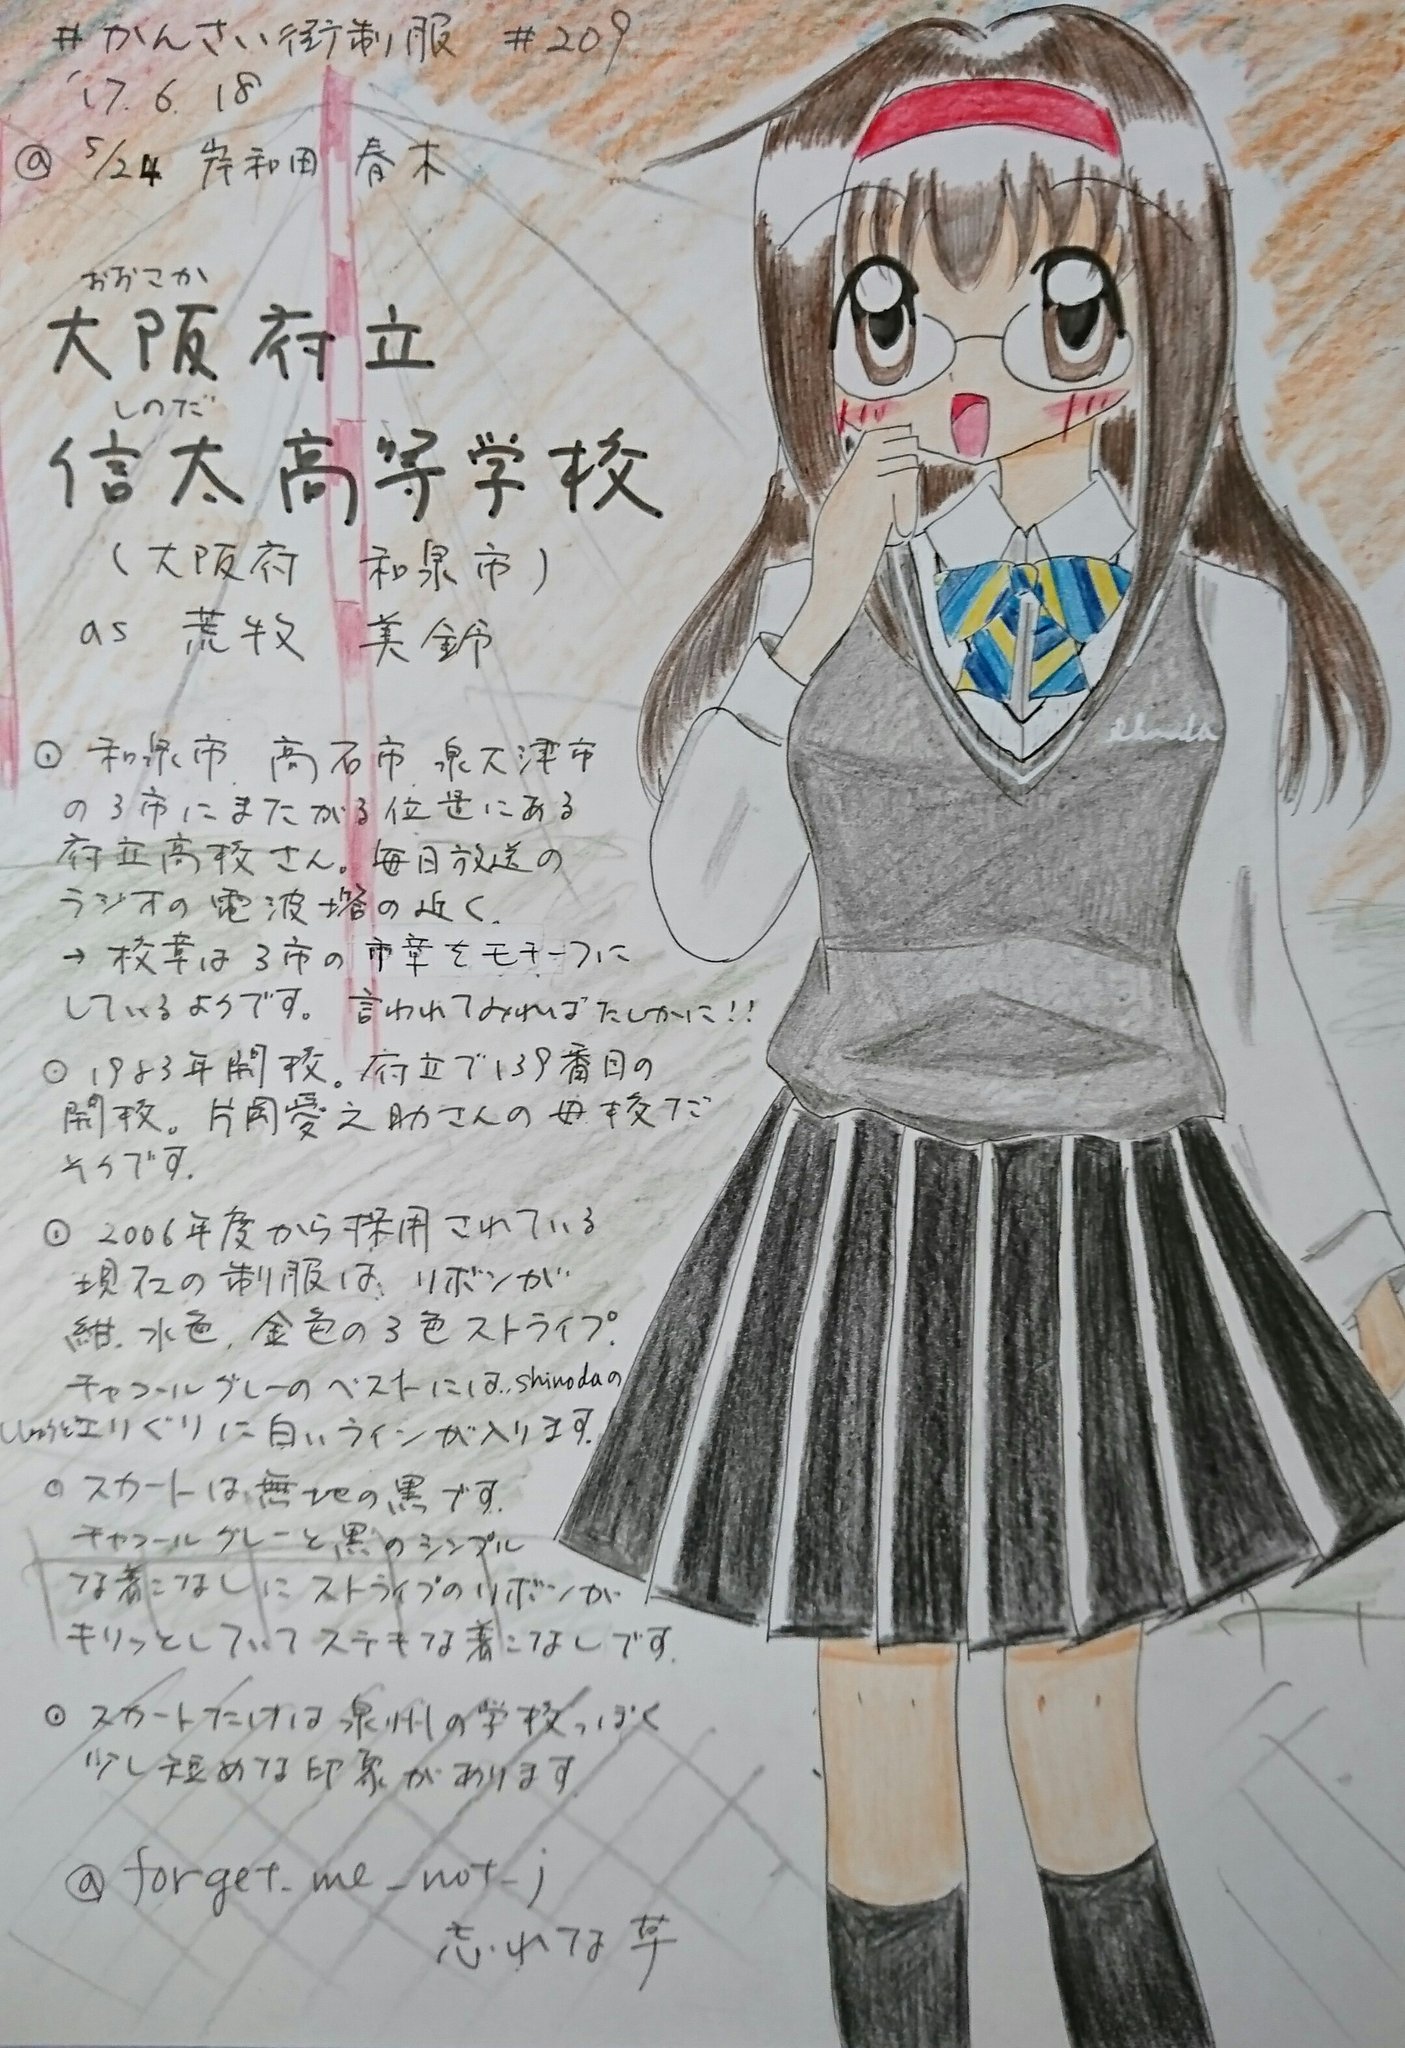 #かんさい街制服 #209
'17.6.18
@ 5/24 岸和田 春木
おおさか
大阪府立
しのだ
信太高等学校
(大阪府 和泉市)
as 荒牧 美鈴
⊙ 和泉市、高石市、泉大津市
の3市にまたがる位置にある
府立高校さん。毎日放送の
ラジオの電波塔の近く。
→校章は3市の市章をモチーフに
しているようです。言われてみればたしかに!!
⊙ 1983年開校。府立で139番目の
開校。片岡愛之助さんの母校だ
そうです。
⊙ 2006年度から採用されている
現在の制服は、リボンが
紺、水色、金色の3色ストライプ。
チャコールグレーのベストには、shinodaの
ししゅうとエリぐりに白いラインが入ります。
⊙ スカートは無地の黒です。
チャコールグレーと黒のシンプル
な着こなしにストライプのリボンが
キリっとしていてステキな着こなしです。
⊙ スカートだけは泉州の学校っぽく
少し短めな印象があります。
@forget_me_not_j
忘れな草
shinoda